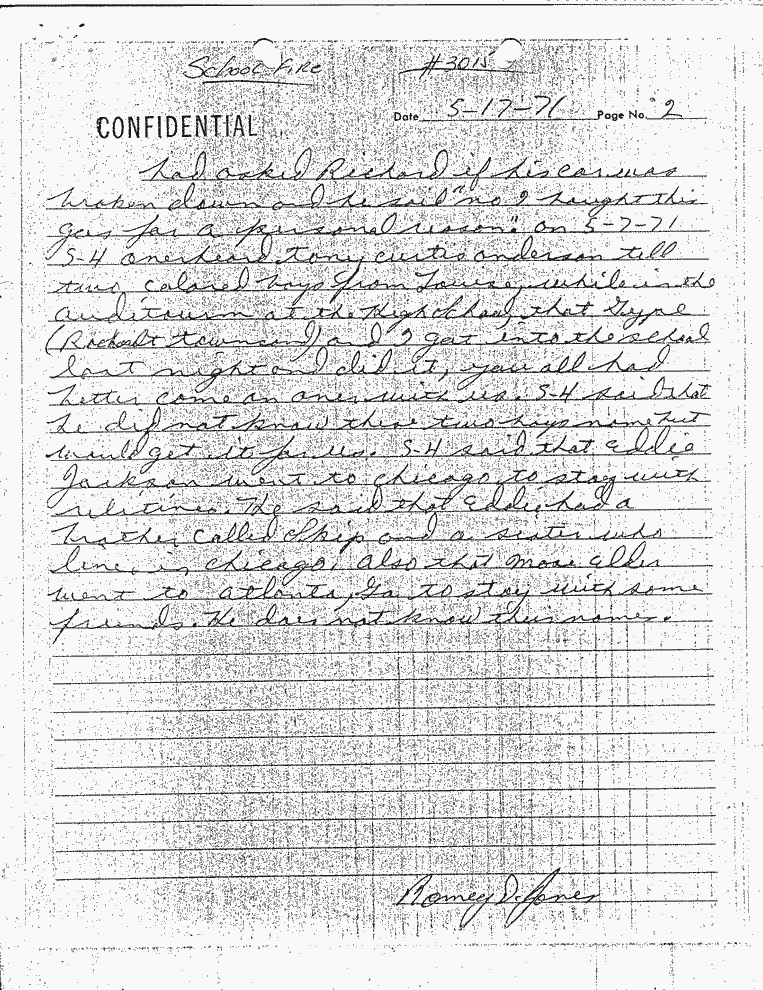 School Fire #3015
CONFIDENTIAL Date 5-17-71 Page No. 2
had asked Richard if his car was
broken down and he said "no I bought this
gas for a personal reason". on 5-7-71
S-4 overheard tony curtis anderson tell
two colored boys from while in the
auditourm at the High School, that Type
( ) and I got into the school
last night and did it, you all had
better come on over with us. S-4 said that
he did not know these two boys name but
would get it for us. S-4 said that Eddie
Jackson went to chicago to stay with
relitives. He said that Eddie had a
brother called Skip and a sister who
live in chicago, also that Mose Elder
went to atlanta, Ga to stay with some
friends. He does not know their names.
Romey D. Jones